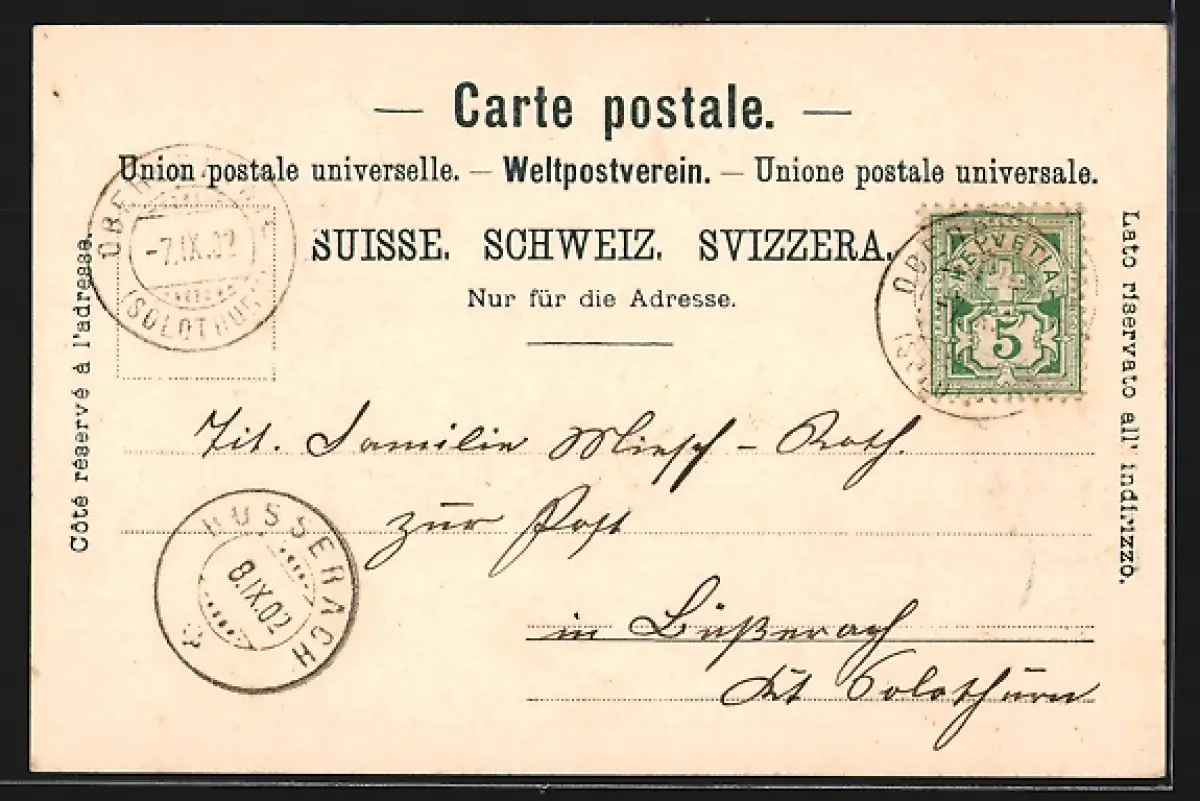 — Carte postale. —
Union postale universelle. — Weltpostverein. — Unione postale universale.
SUISSE. SCHWEIZ. SVIZZERA.
Nur für die Adresse.
Côté réservé à l'adresse.
Lato riservato all' indirizzo.
-7.IX.02
(SOLOTHURN)
HELVETIA
5
Tit. Familie Miesch - Roth.
zur Post
in Büßerach
Kt Solothurn
BÜSSERACH
8.IX.02